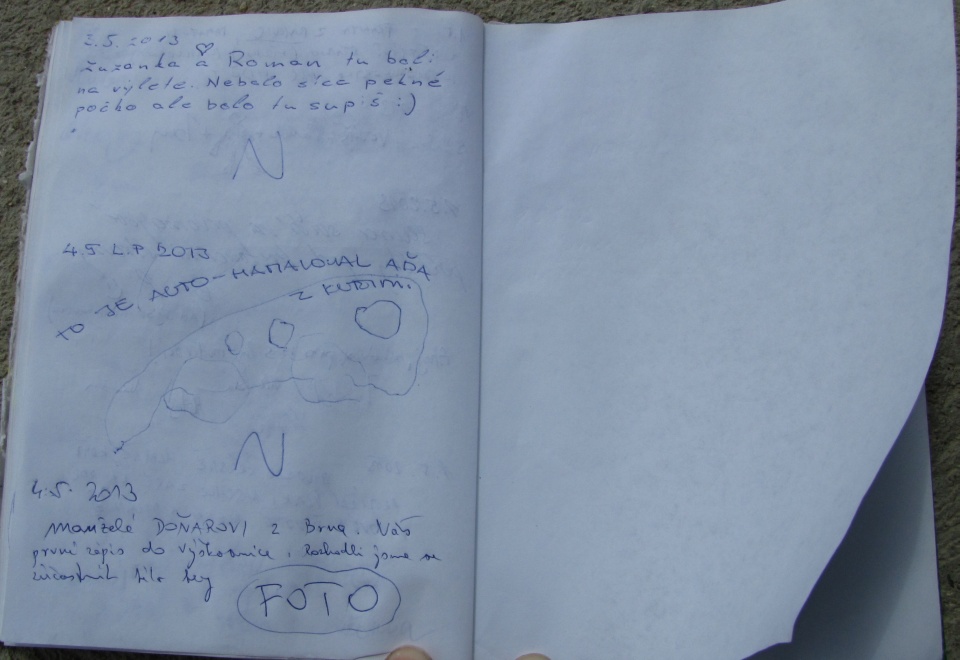 2.5.2013
Zuzanka a Roman tu boli
na výlete. Nebolo síce pekné
počko ale bolo tu supiš :)
N
4.5. L.P 2013
TO JE AUTO-NAMALOVAL AĎA
Z KUŘIMI.
N
4.5. 2013
Manželé DOŇAROVI z Brna. Náš
první zápis do výškovnice. Rozhodli jsme se
zúčastnit této hry
FOTO